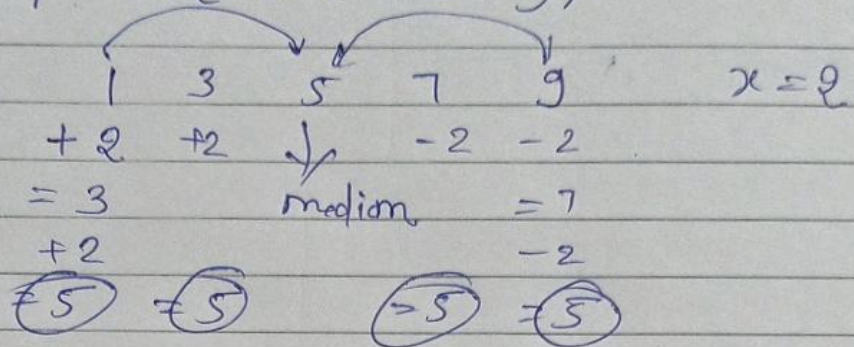 1 3 5 7 9 x = 2
+ 2 +2 - 2 - 2
= 3 median = 7
+ 2 - 2
= 5 = 5 = 5 = 5